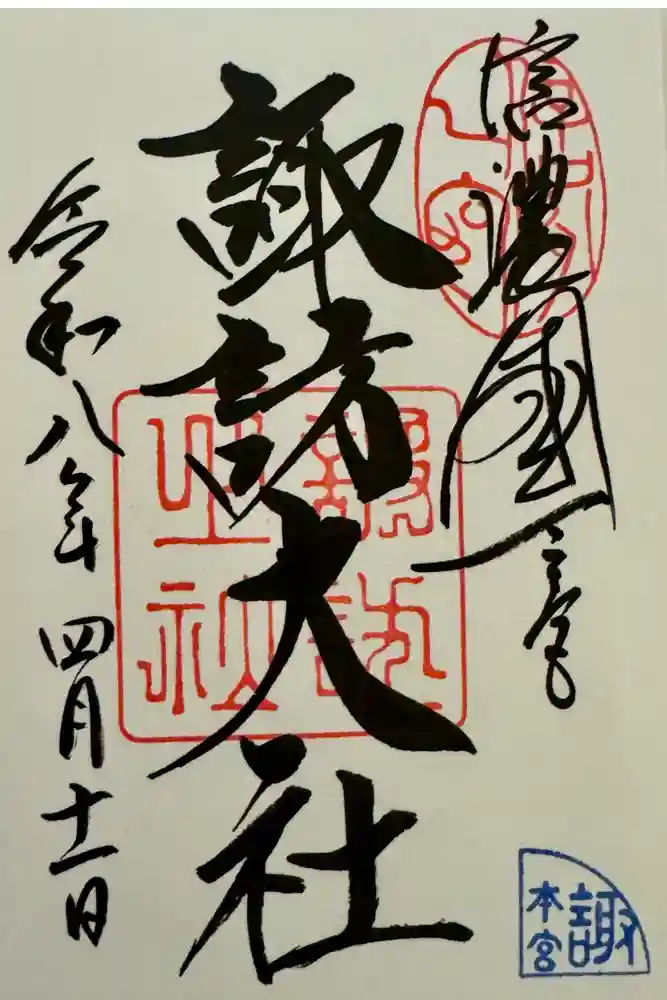 信濃國一之宮
諏訪大社
令和八年 四月十一日
諏訪之神
諏
本宮